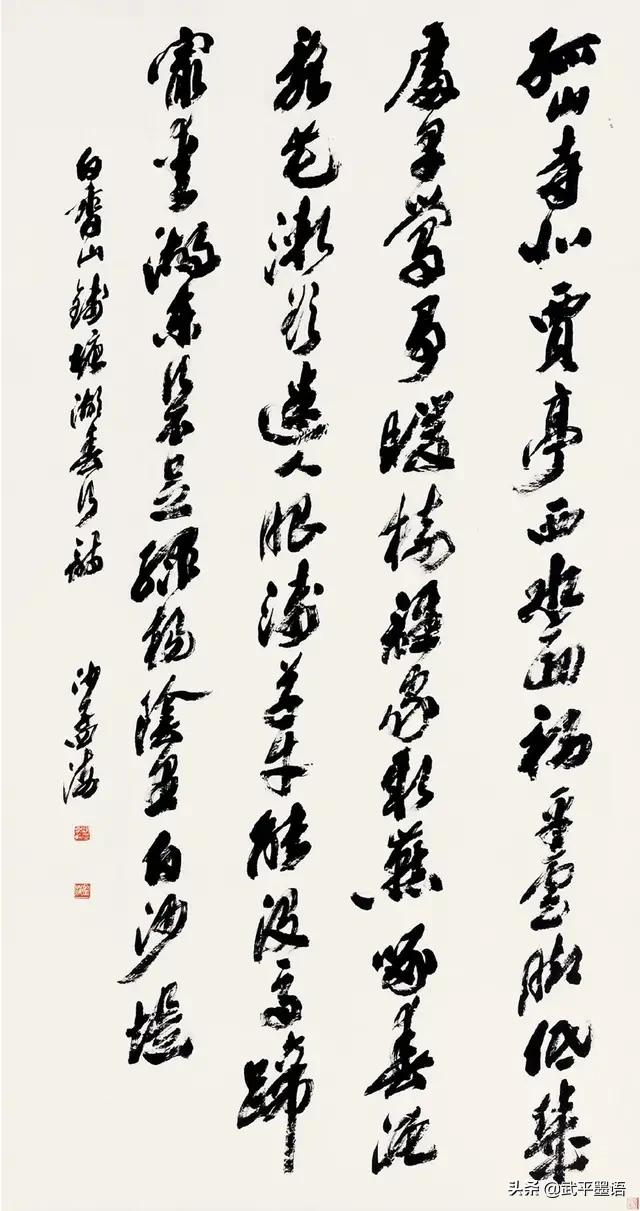 孤山寺北賈亭西水面初平雲脚低幾
處早鶯爭暖樹誰家新燕啄春泥
亂花漸欲迷人眼淺草才能沒馬蹄
最愛湖東行不足綠楊陰里白沙堤
白香山錢塘湖春行詩 沙孟海
头条 @武平墨语